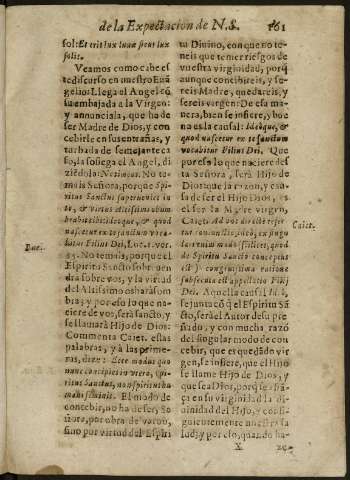 de la Expectacion de N.S. 161
sol: Et erit lux lunæ sicut lux
solis.
Veamos como cabe es
te discurso en nuestro Euã
gelio: Llega el Angel cõ
su embajada a la Virgen:
y annunciala, que ha de
ser Madre de Dios, y con
cebirle en sus entrañas, y
turbada de semejante ca
so, la sosiega el Angel, di
ziẽdola: Ne timeas. No te-
mais Señora, porque Spi-
ritus Sanctus superveniet in
te, & virtus altissimi obum
brabit tibi: ideoque, & quod
nascetur ex te sanctum voca-
bitur Filius Dei, Luc. 1. ver.
Luc. 1.
No temais, porque el
Espiritu Santo sobreuen
drà sobre vos, y la virtud
del Altisimo os harà som
bra; y por esso lo que na-
ciere de vos, serà sancto, y
se llamarà Hijo de Dios:
Commenta Caiet. estas
palabras, y à las prime-
ras, dize:
nunc concipies in vtero, Spi-
ritus Sanctus, non spiritus hu
mani seminis. El modo de
concebir, no ha de ser, Se
ñora, por obra de varon,
sino por virtud del Espiri
tu Divino, con que no te-
neis que temer riesgos de
vuestra virginidad, porq̃
aunque concibireis, y se-
reis Madre, quedareis, y
sereis virgen: De esa ma-
nera, bien se infiere, y bue
na es la causal: Ideòque, &
quod nascetur ex te sanctum
vocabitur Filius Dei. Que
por esso lo que naciere des
ta Señora, serà Hijo de
Dios: que la razon, y cau-
sa de ser el Hijo Dios, es
el ser la Madre virgen,
Caiet.
Caiet.
de Spiritu Sancto conceptus
est) congruissima ratione
subsecuta est appellatio Filij
Dei. Aquella causal
se junta cõ q̃ el Espiritu Sã
cto, serà el Autor deste pre
ñado, y con mucha razõ
del singular modo de con
cebir, que es quedãdo vir
gen, se infiere, que el Hijo
se llame Hijo de Dios, y
que sea Dios, porq̃
ça en su virginidad la di-
uinidad del Hijo, y consi-
guientemente nuestra sa
lud; y por esso, quando ha-
X